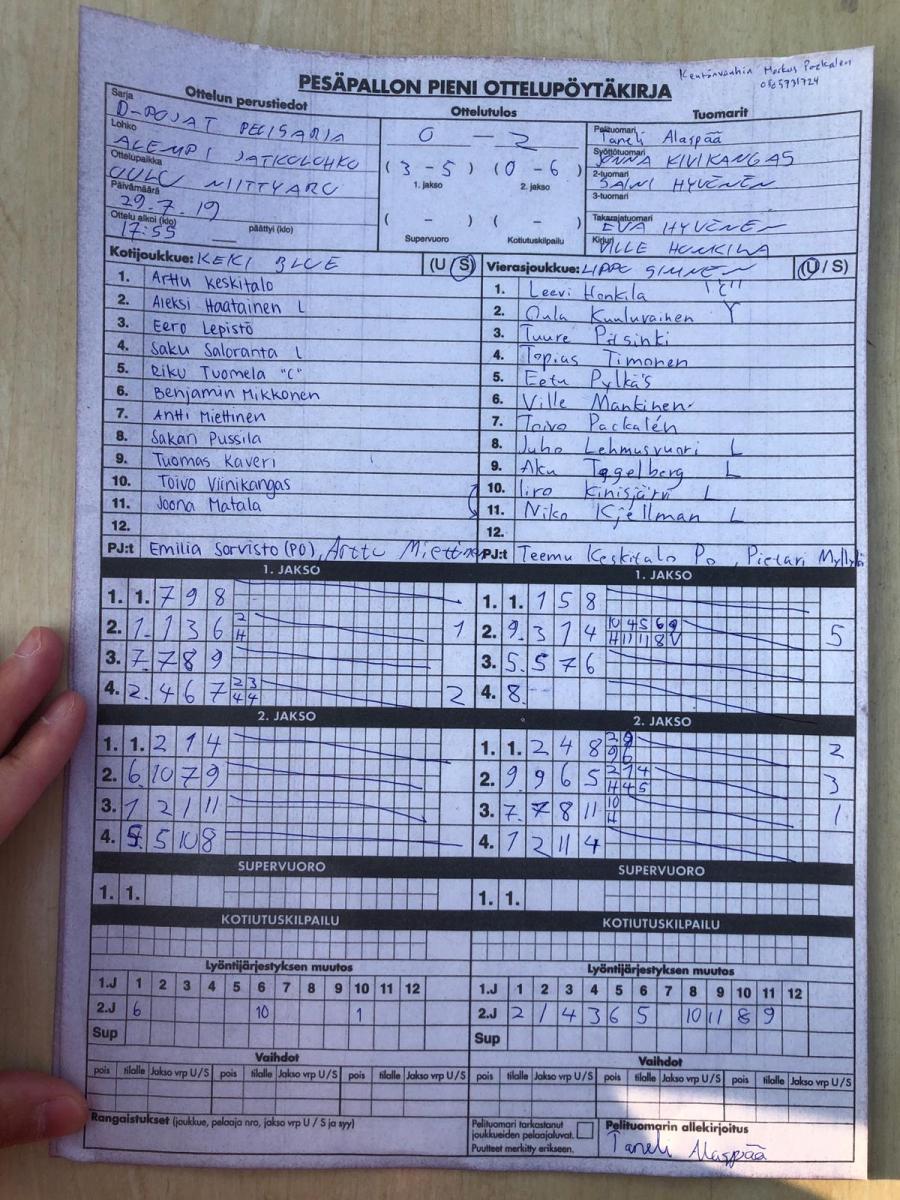 Kentänvanhin Markus Packalen
PESÄPALLON PIENI OTTELUPÖYTÄKIRJA
Ottelun perustiedot
Sarja
D-POJAT PELISARJA
Lohko
ALEMPI JATKOLOHKO
Ottelupaikka
OULU NIITTYARO
Päivämäärä
29.7.19
Ottelu alkoi (klo) päättyi (klo)
17:55
Ottelutulos
0 - 2
(3 - 5) (0 - 6)
1. jakso 2. jakso
( - ) ( - )
Supervuoro Kotiutuskilpailu
Tuomarit
Pelituomari
Taneli Alaspää
Syöttötuomari
JONNA KIVIKANGAS
2-tuomari
SAINI HYVÖNEN
3-tuomari
Takarajatuomari
EVA HYVÖNEN
Kirjuri
VILLE HONKILA
Kotijoukkue: KEKI BLUE (U / S)
1. Arttu Keskitalo
2. Aleksi Haatainen L
3. Eero Lepistö
4. Saku Saloranta L
5. Riku Tuomela "C"
6. Benjamin Mikkonen
7. Antti Miettinen
8. Sakari Pussila
9. Tuomas Kaveri
10. Toivo Viinikangas
11. Joona Matala
12.
PJ:t Emilia Sorvisto (PO), Arttu Miettinen
Vierasjoukkue: LIPPO (U / S)
1. Leevi Honkila "C"
2. Oula Kuuluvainen Y
3. Tuure Piisinki
4. Topias Timonen
5. Eetu Pylkäs
6. Ville Mankinen
7. Toivo Packalén
8. Juho Lehmusvuori L
9. Aku Tggelberg L
10. Iiro Kinisjärvi L
11. Niko Kjellman L
12.
PJ:t Teemu Keskitalo Po, Pietari Myllylä
1. JAKSO
1. 1. 7 9 8
2. 1. 1 3 6 2 H 1
3. 7. 7 8 9
4. 2. 4 6 7 2 3 4 4 2
1. JAKSO
1. 1. 1 5 8
2. 9. 3 1 4 10 4 5 6 9 H 11 1 8 V 5
3. 5. 5 7 6
4. 8. - -
2. JAKSO
1. 1. 2 1 4
2. 6. 10 7 9
3. 1 2 1 11
4. 5. 5 10 8
2. JAKSO
1. 1. 2 4 8 2 9 9 6 2
2. 9. 9 6 5 2 1 4 H 4 5 3
3. 7. 7 8 11 10 H 1
4. 1 2 11 4
SUPERVUORO
1. 1.
SUPERVUORO
1. 1.
KOTIUTUSKILPAILU
KOTIUTUSKILPAILU
Lyöntijärjestyksen muutos
1.J 1 2 3 4 5 6 7 8 9 10 11 12
2.J 6 10 1
Sup
Lyöntijärjestyksen muutos
1.J 1 2 3 4 5 6 7 8 9 10 11 12
2.J 2 1 4 3 6 5 10 11 8 9
Sup
Vaihdot
pois tilalle Jakso vrp U/S pois tilalle Jakso vrp U/S pois tilalle Jakso vrp U/S
Vaihdot
pois tilalle Jakso vrp U/S pois tilalle Jakso vrp U/S pois tilalle Jakso vrp U/S
Rangaistukset (joukkue, pelaaja nro, jakso vrp U / S ja syy)
Pelituomari tarkastanut
joukkueiden pelaajaluvat.
Puutteet merkitty erikseen.
Pelituomarin allekirjoitus
Taneli Alaspää